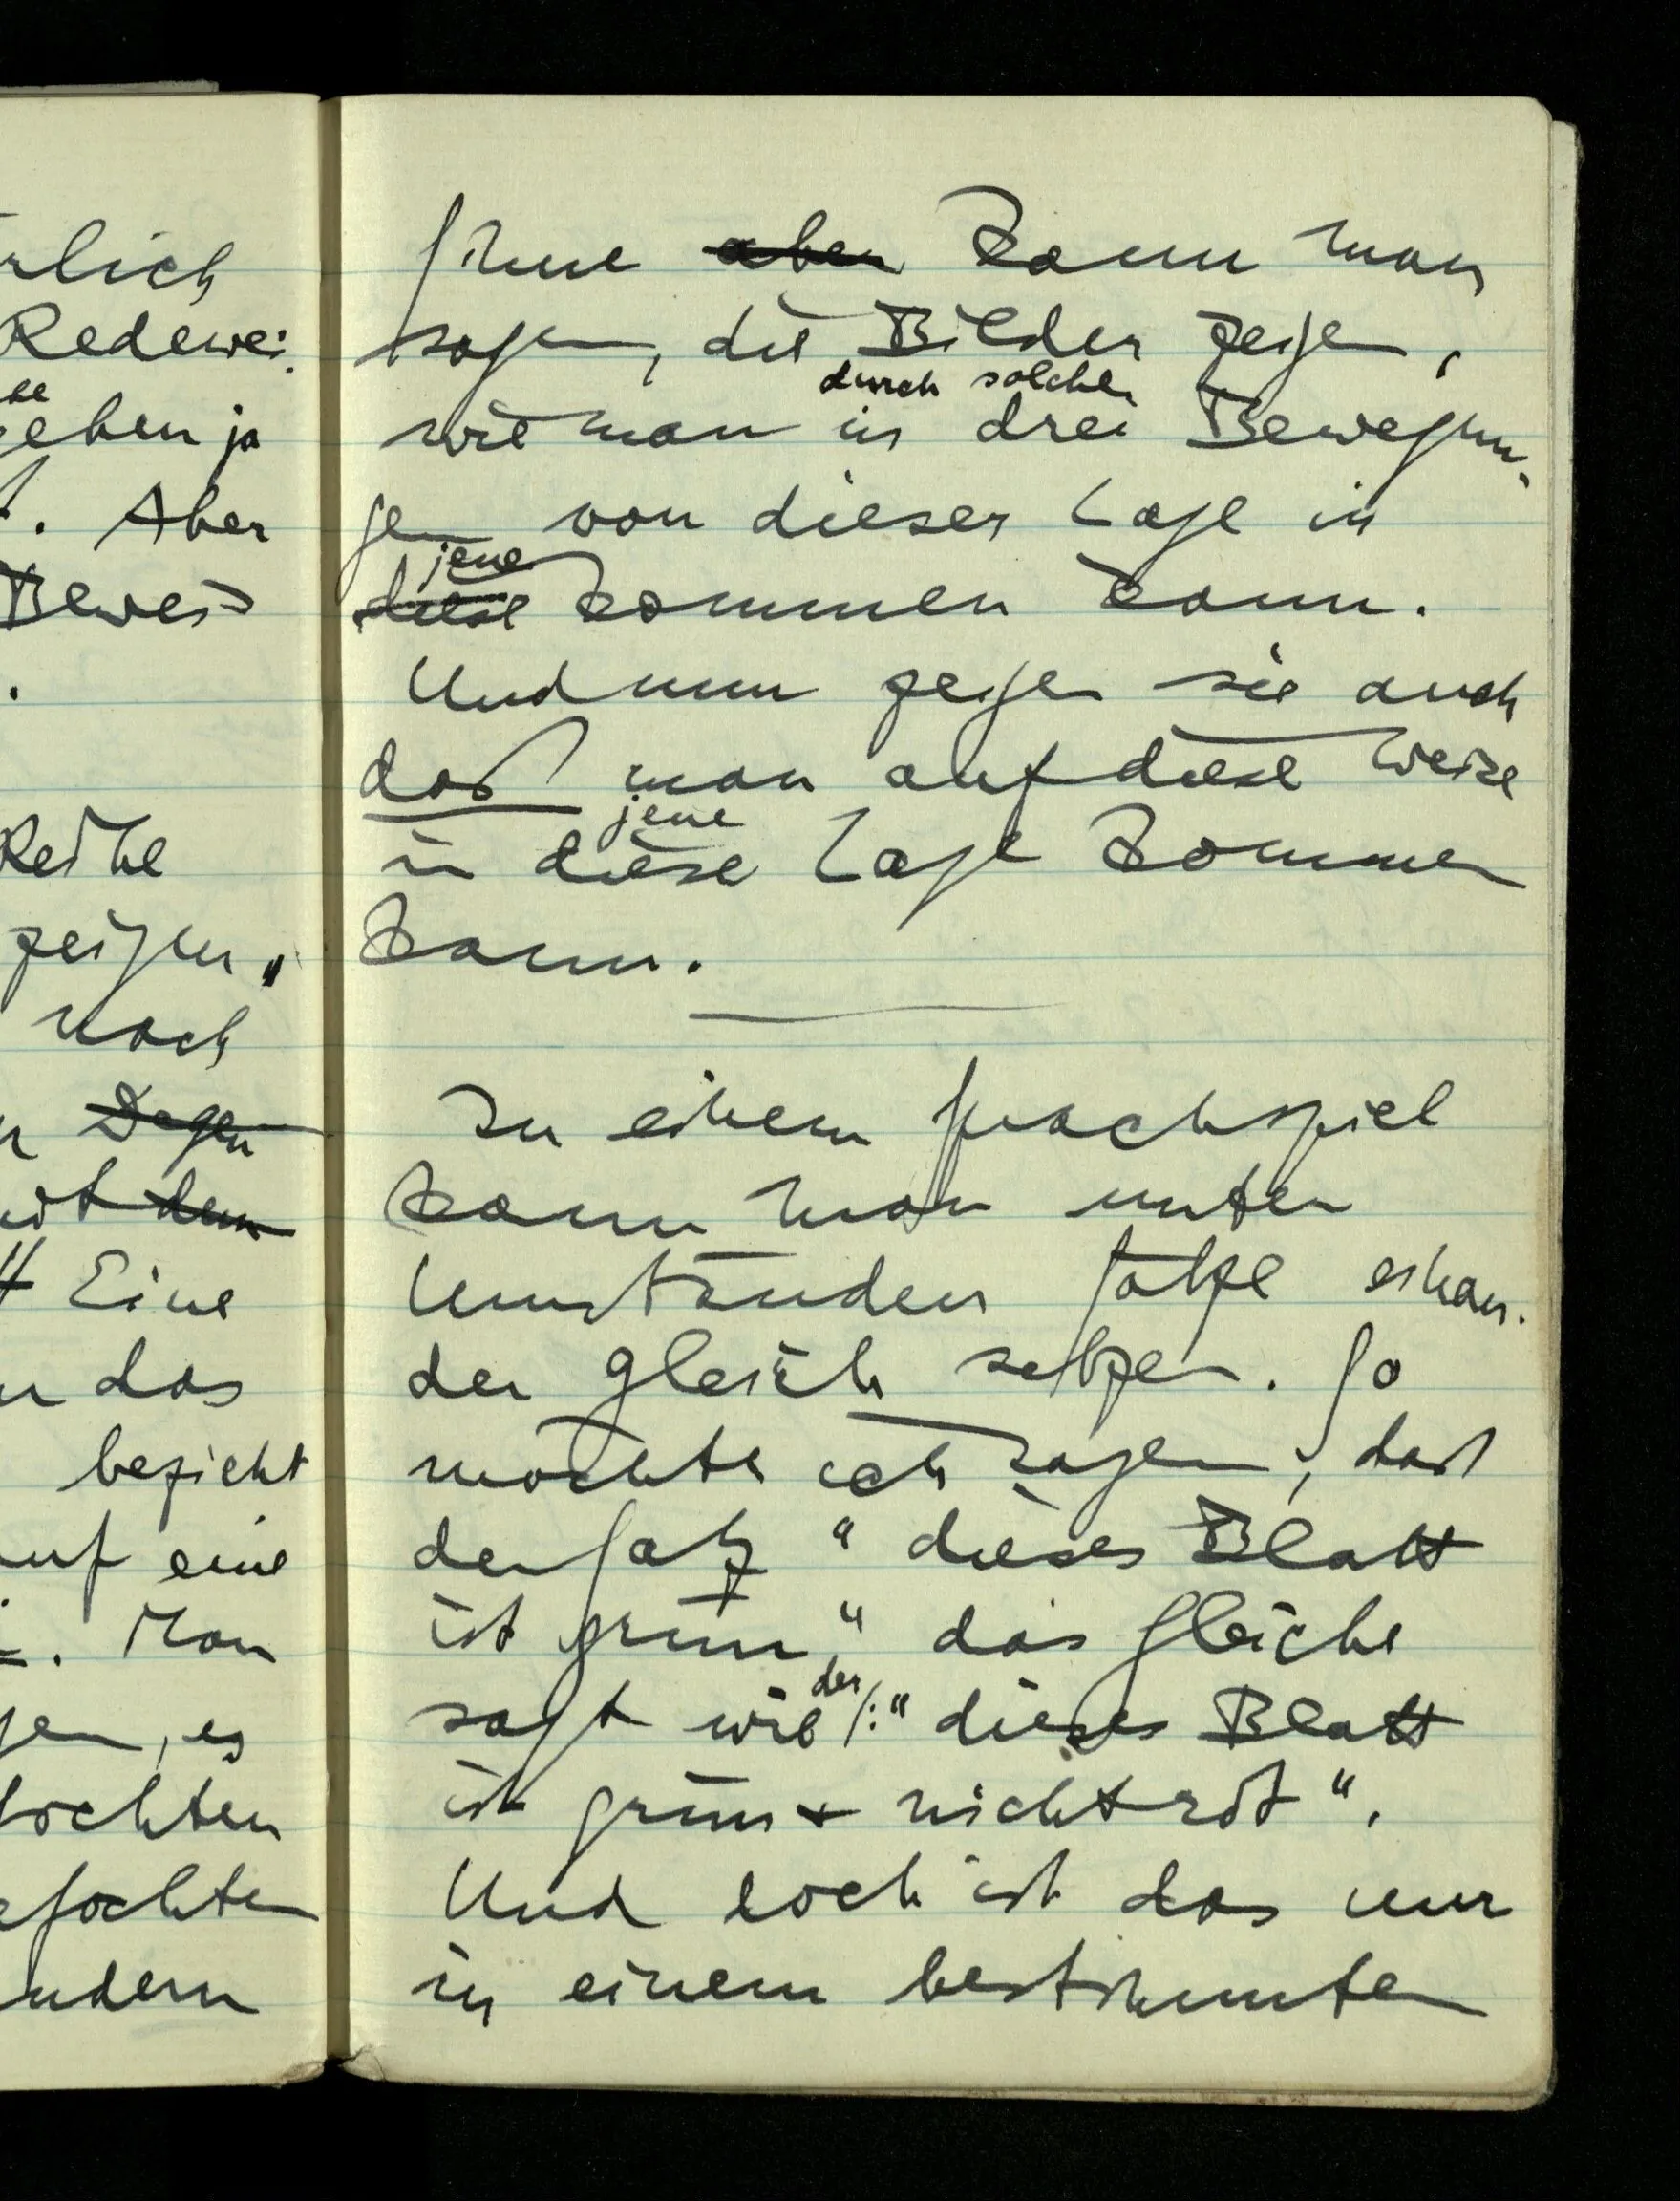 rlich
Redewei-
be
geben ja
. Aber
Beweis
.
Reihe
zeigen"
noch
Degen
ist dem
Eine
n das
bezieht
auf eine
. Man
gen, es
fochten
efochten
ndern
Sinne aber kann man
sagen, die Bilder zeigen,
durch solche
wie man in drei Bewegun-
gen von dieser Lage in
jene
diese kommen kann.
Und nun zeigen sie auch
daß man auf diese Weise
jene
in diese Lage kommen
kann.
In einem Sprachspiel
kann man unter
Umständen Sätze einan-
der gleich setzen. So
möchte ich sagen, daß
der Satz "dieses Blatt
ist grün", das Gleiche
der
sagt wie /: "dieses Blatt
ist grün + nicht rot".
Und doch ist das nur
in einem bestimmten